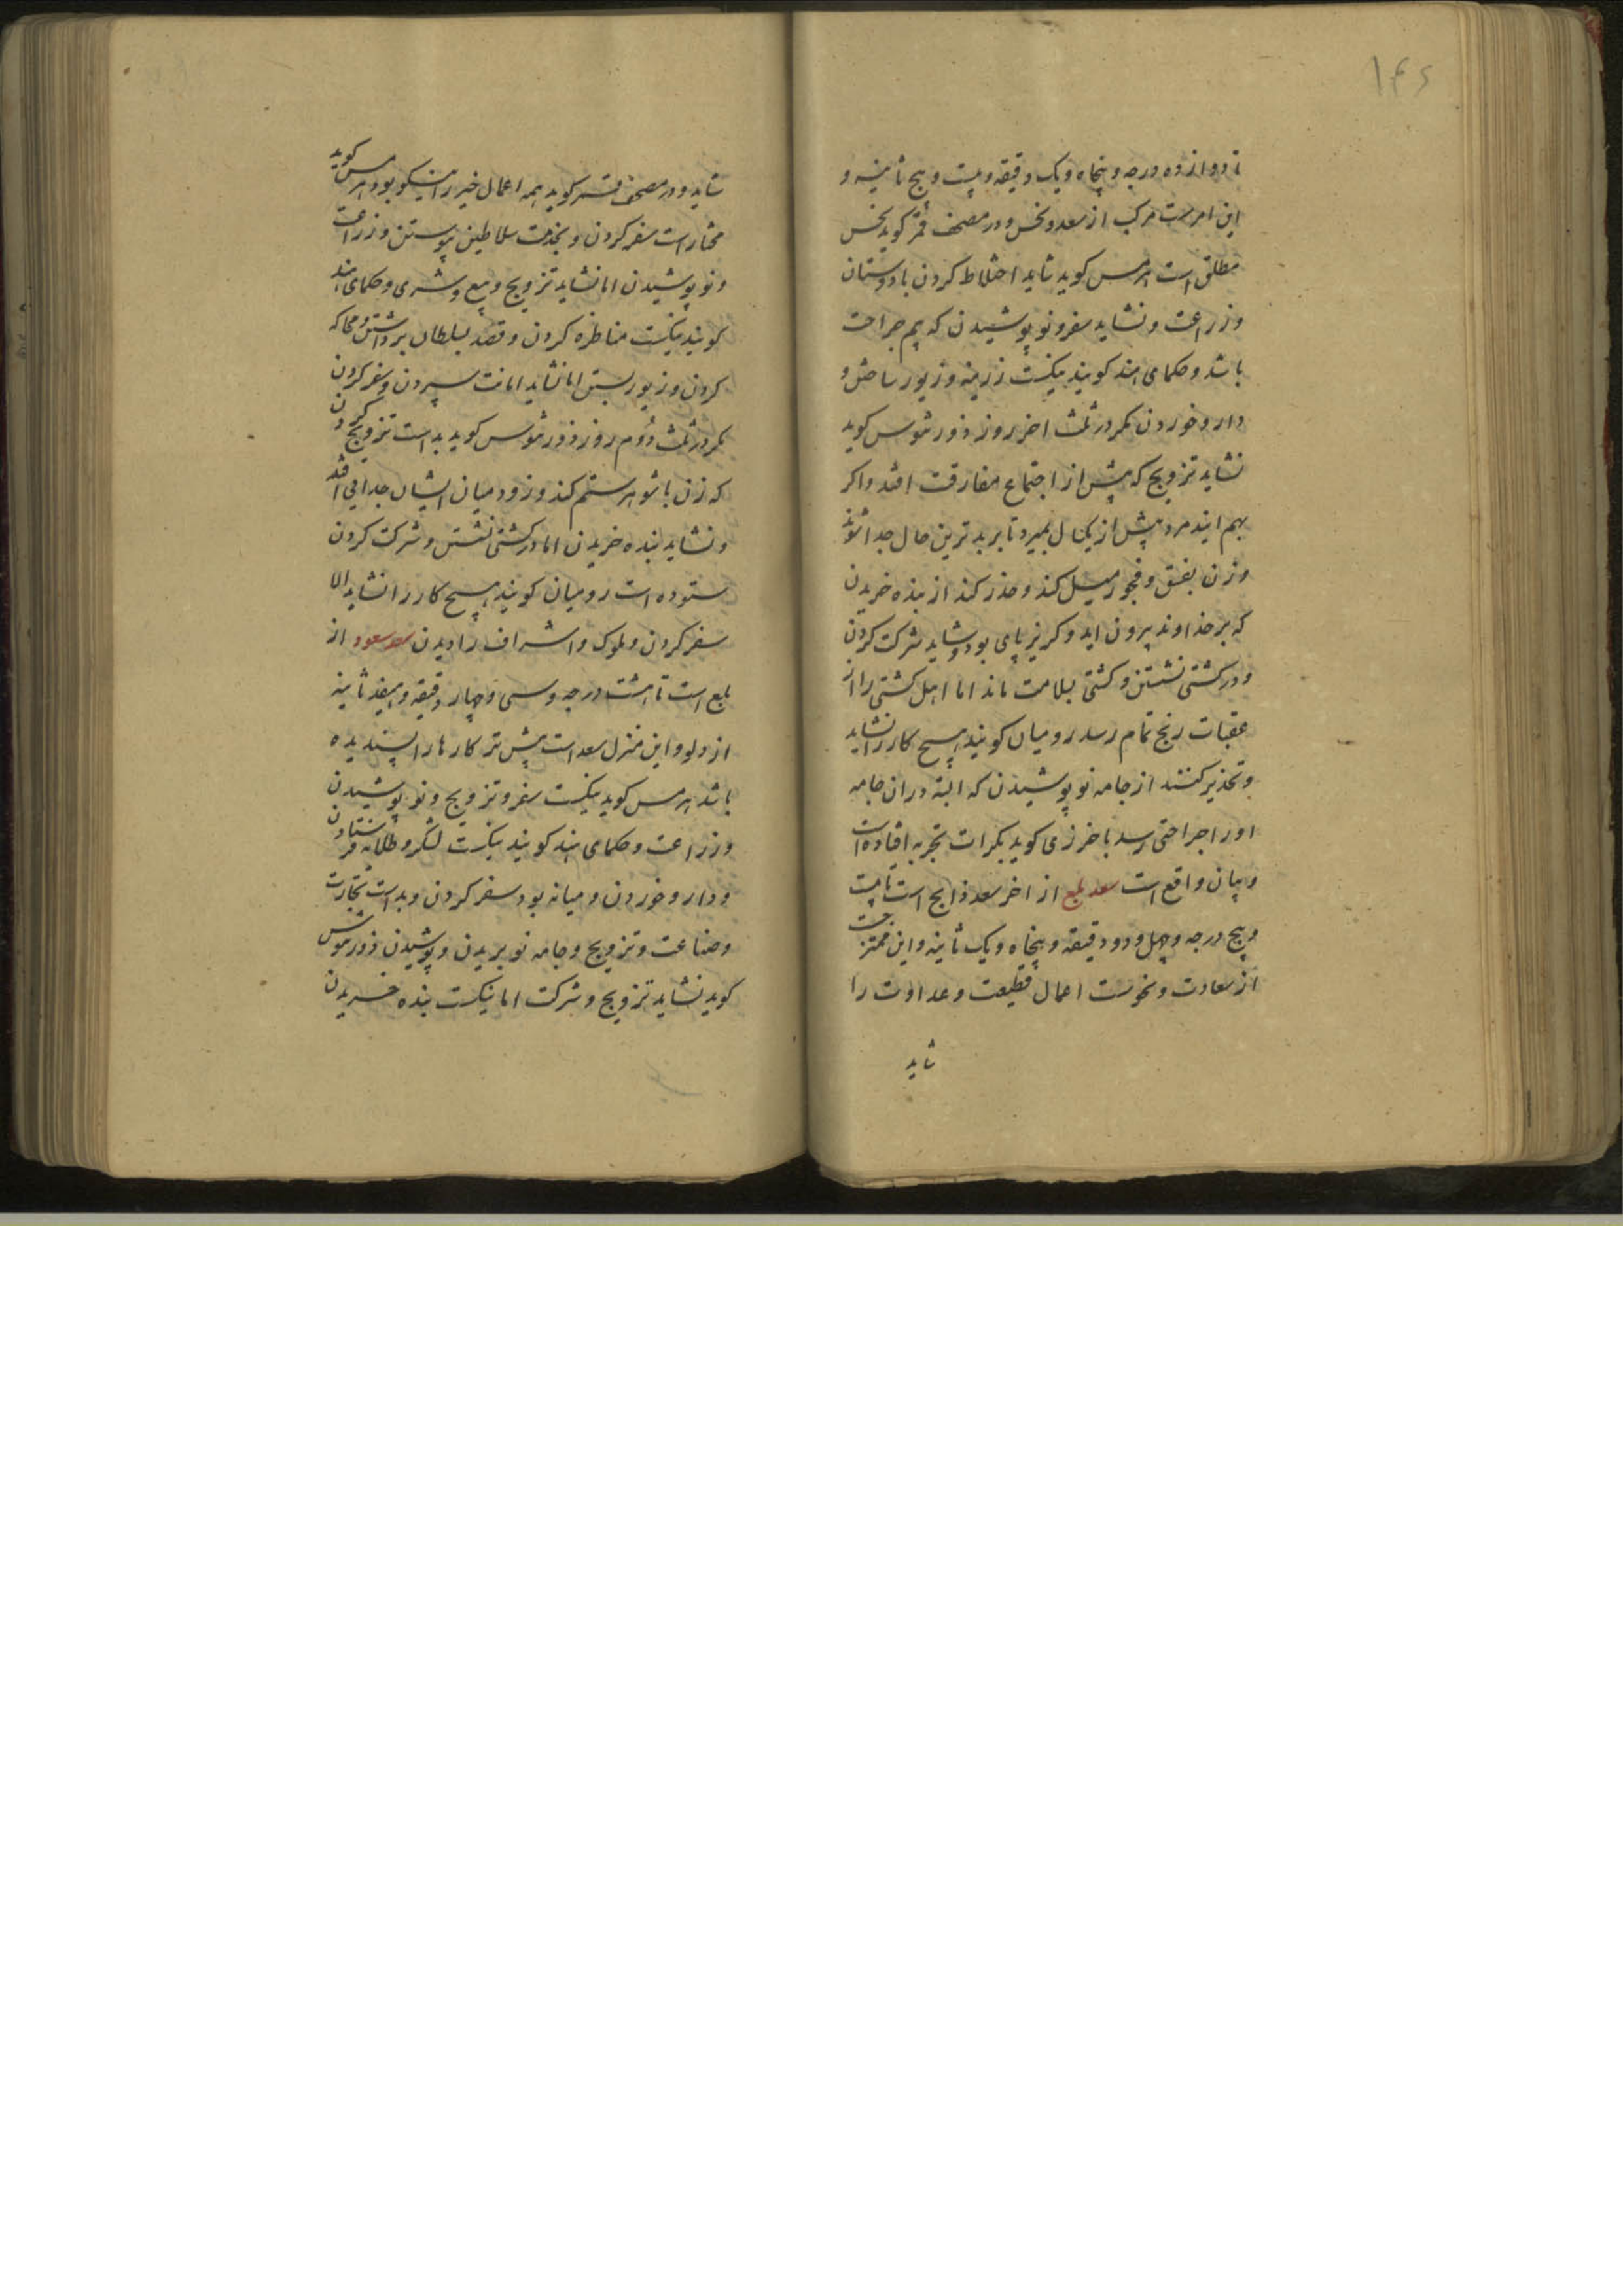 ۱۴۶
تا دوازده درجه و پنجاه و یک دقیقه و بیست و پنج ثانیه و
این امریست مرکب از سعد و نحس و در مصحف قمر کوید نحس
مطلق است هرمس کوید شاید اختلاط کردن با دوستان
و زراعت و نشاید سفر و نو پوشیدن که بیم جراحت
باشد و حکمای هند کویند نیکست زرینه و زیور ساختن و
دارو خوردن مکر در ثلث اخر روز ذورثیوس کوید
نشاید تزویج که پیش از اجتماع مفارقت افتد و اکر
بهم ایند مرد پیش از یکسال بمیرد تا بر بدترین حال جدا شوند
و زن بفسق و فجور میل کند و حذر کند از بنده خریدن
که بر خداوند بیرون اید و کریزپای بود و شاید شرکت کردن
و در کشتی نشستن و کشتی بسلامت ماند اما اهل کشتی را از
عقبات رنج تمام رسد رومیان کویند هیچ کار را نشاید
و تحذیر کنند از جامه نو پوشیدن که البته در ان جامه
او را جراحتی رسد باخرزی کوید بکرات تجربه افتاده است
و بیان واقع است سعد بلع از اخر سعد ذابح است تا بیست
و پنج درجه و چهل و دو دقیقه و پنجاه و یک ثانیه و این ممتزجست
از سعادت و نحوست اعمال قطیعت و عداوت را
شاید
شاید و در مصحف قمر کوید همه اعمال خیر را نیکو بود هرمس کوید
مختار است سفر کردن و بخدمت سلاطین پیوستن و زراعت
و نو پوشیدن اما نشاید تزویج و بیع و شری و حکمای هند
کویند نیکست مناظره کردن و قصه بسلطان برداشتن و محاکه
کردن و زیور بستن اما نشاید امانت سپردن و سفر کردن
مکر در ثلث دوم روز ذورثیوس کوید بد است تزویج کردن
که زن با شوهر ستم کند و زود میان ایشان جدایی افتد
و نشاید بنده خریدن اما در کشتی نشستن و شرکت کردن
ستوده است رومیان کویند هیچ کار را نشاید الا
سفر کردن و ملوک و اشراف را دیدن سعد سعود از
بلع است تا هشت درجه و سی و چهار دقیقه و هفده ثانیه
از دلو و این منزل سعد است بیش تر کارها را پسندیده
باشد هرمس کوید نیکست سفر و تزویج و نو پوشیدن
و زراعت و حکمای هند کویند نیکست لشکر و طلایه فرستادن
و دارو خوردن و میانه بود سفر کردن و بد است تجارت
و صناعت و تزویج و جامه نو بریدن و پوشیدن ذورثیوس
کوید نشاید تزویج و شرکت اما نیکست بنده خریدن